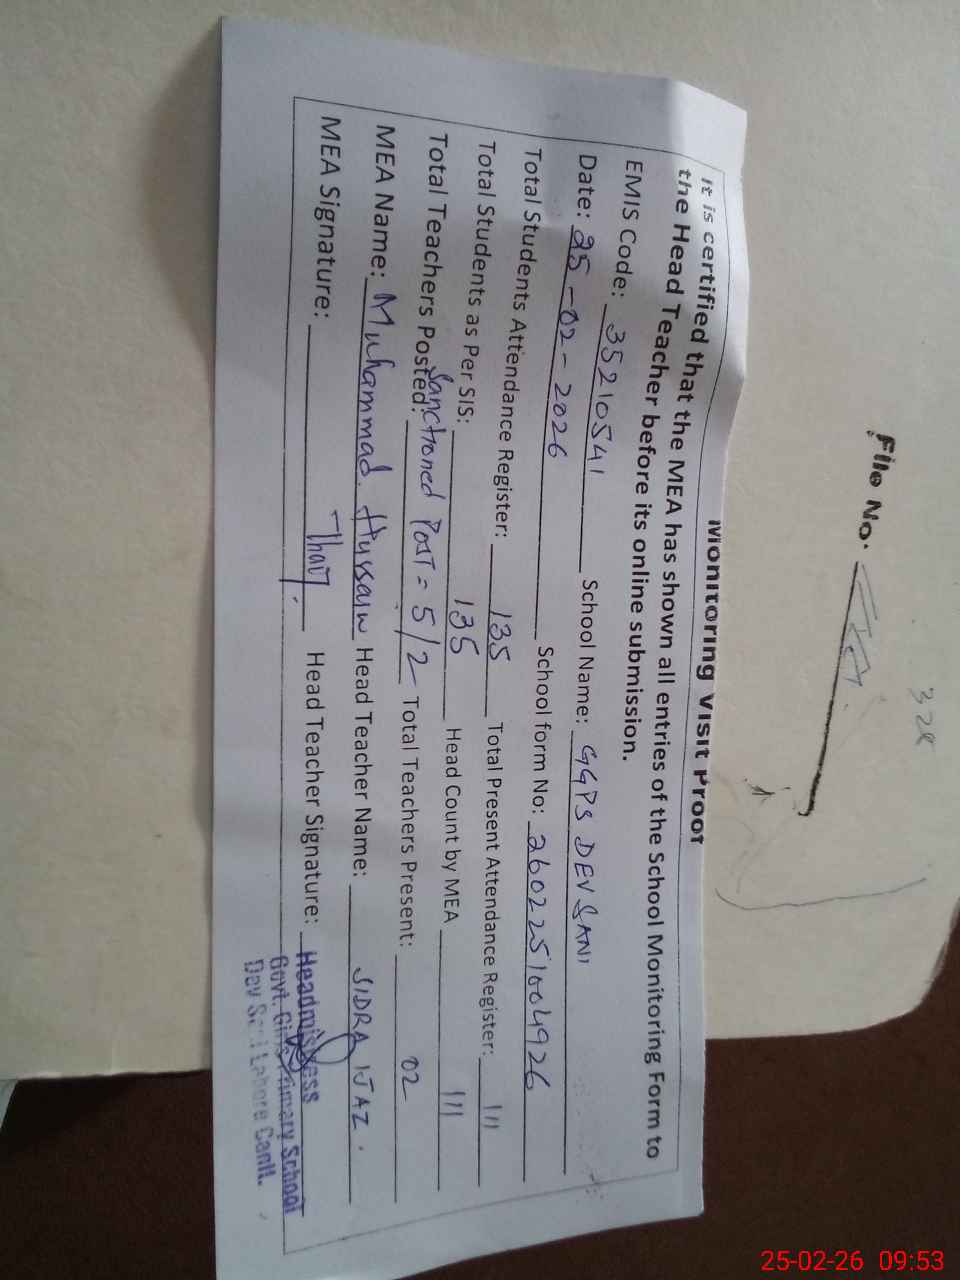 Monitoring Visit Proof
It is certified that the MEA has shown all entries of the School Monitoring Form to
the Head Teacher before its online submission.
EMIS Code: 35210541 School Name: GGPS DEV SANI
Date: 25-02-2026 School form No: 2602251004926
Total Students Attendance Register: 135 Total Present Attendance Register: 111
Total Students as Per SIS: 135 Head Count by MEA 111
Total Teachers Posted: Sanctioned Post = 5/2 Total Teachers Present: 02
MEA Name: Muhammad Hussain Head Teacher Name: SIDRA IJAZ.
MEA Signature: Head Teacher Signature:
Headmistress
Govt. Girls Primary School
Dev Sani Lahore Cantt.
File No.
328
25-02-26 09:53